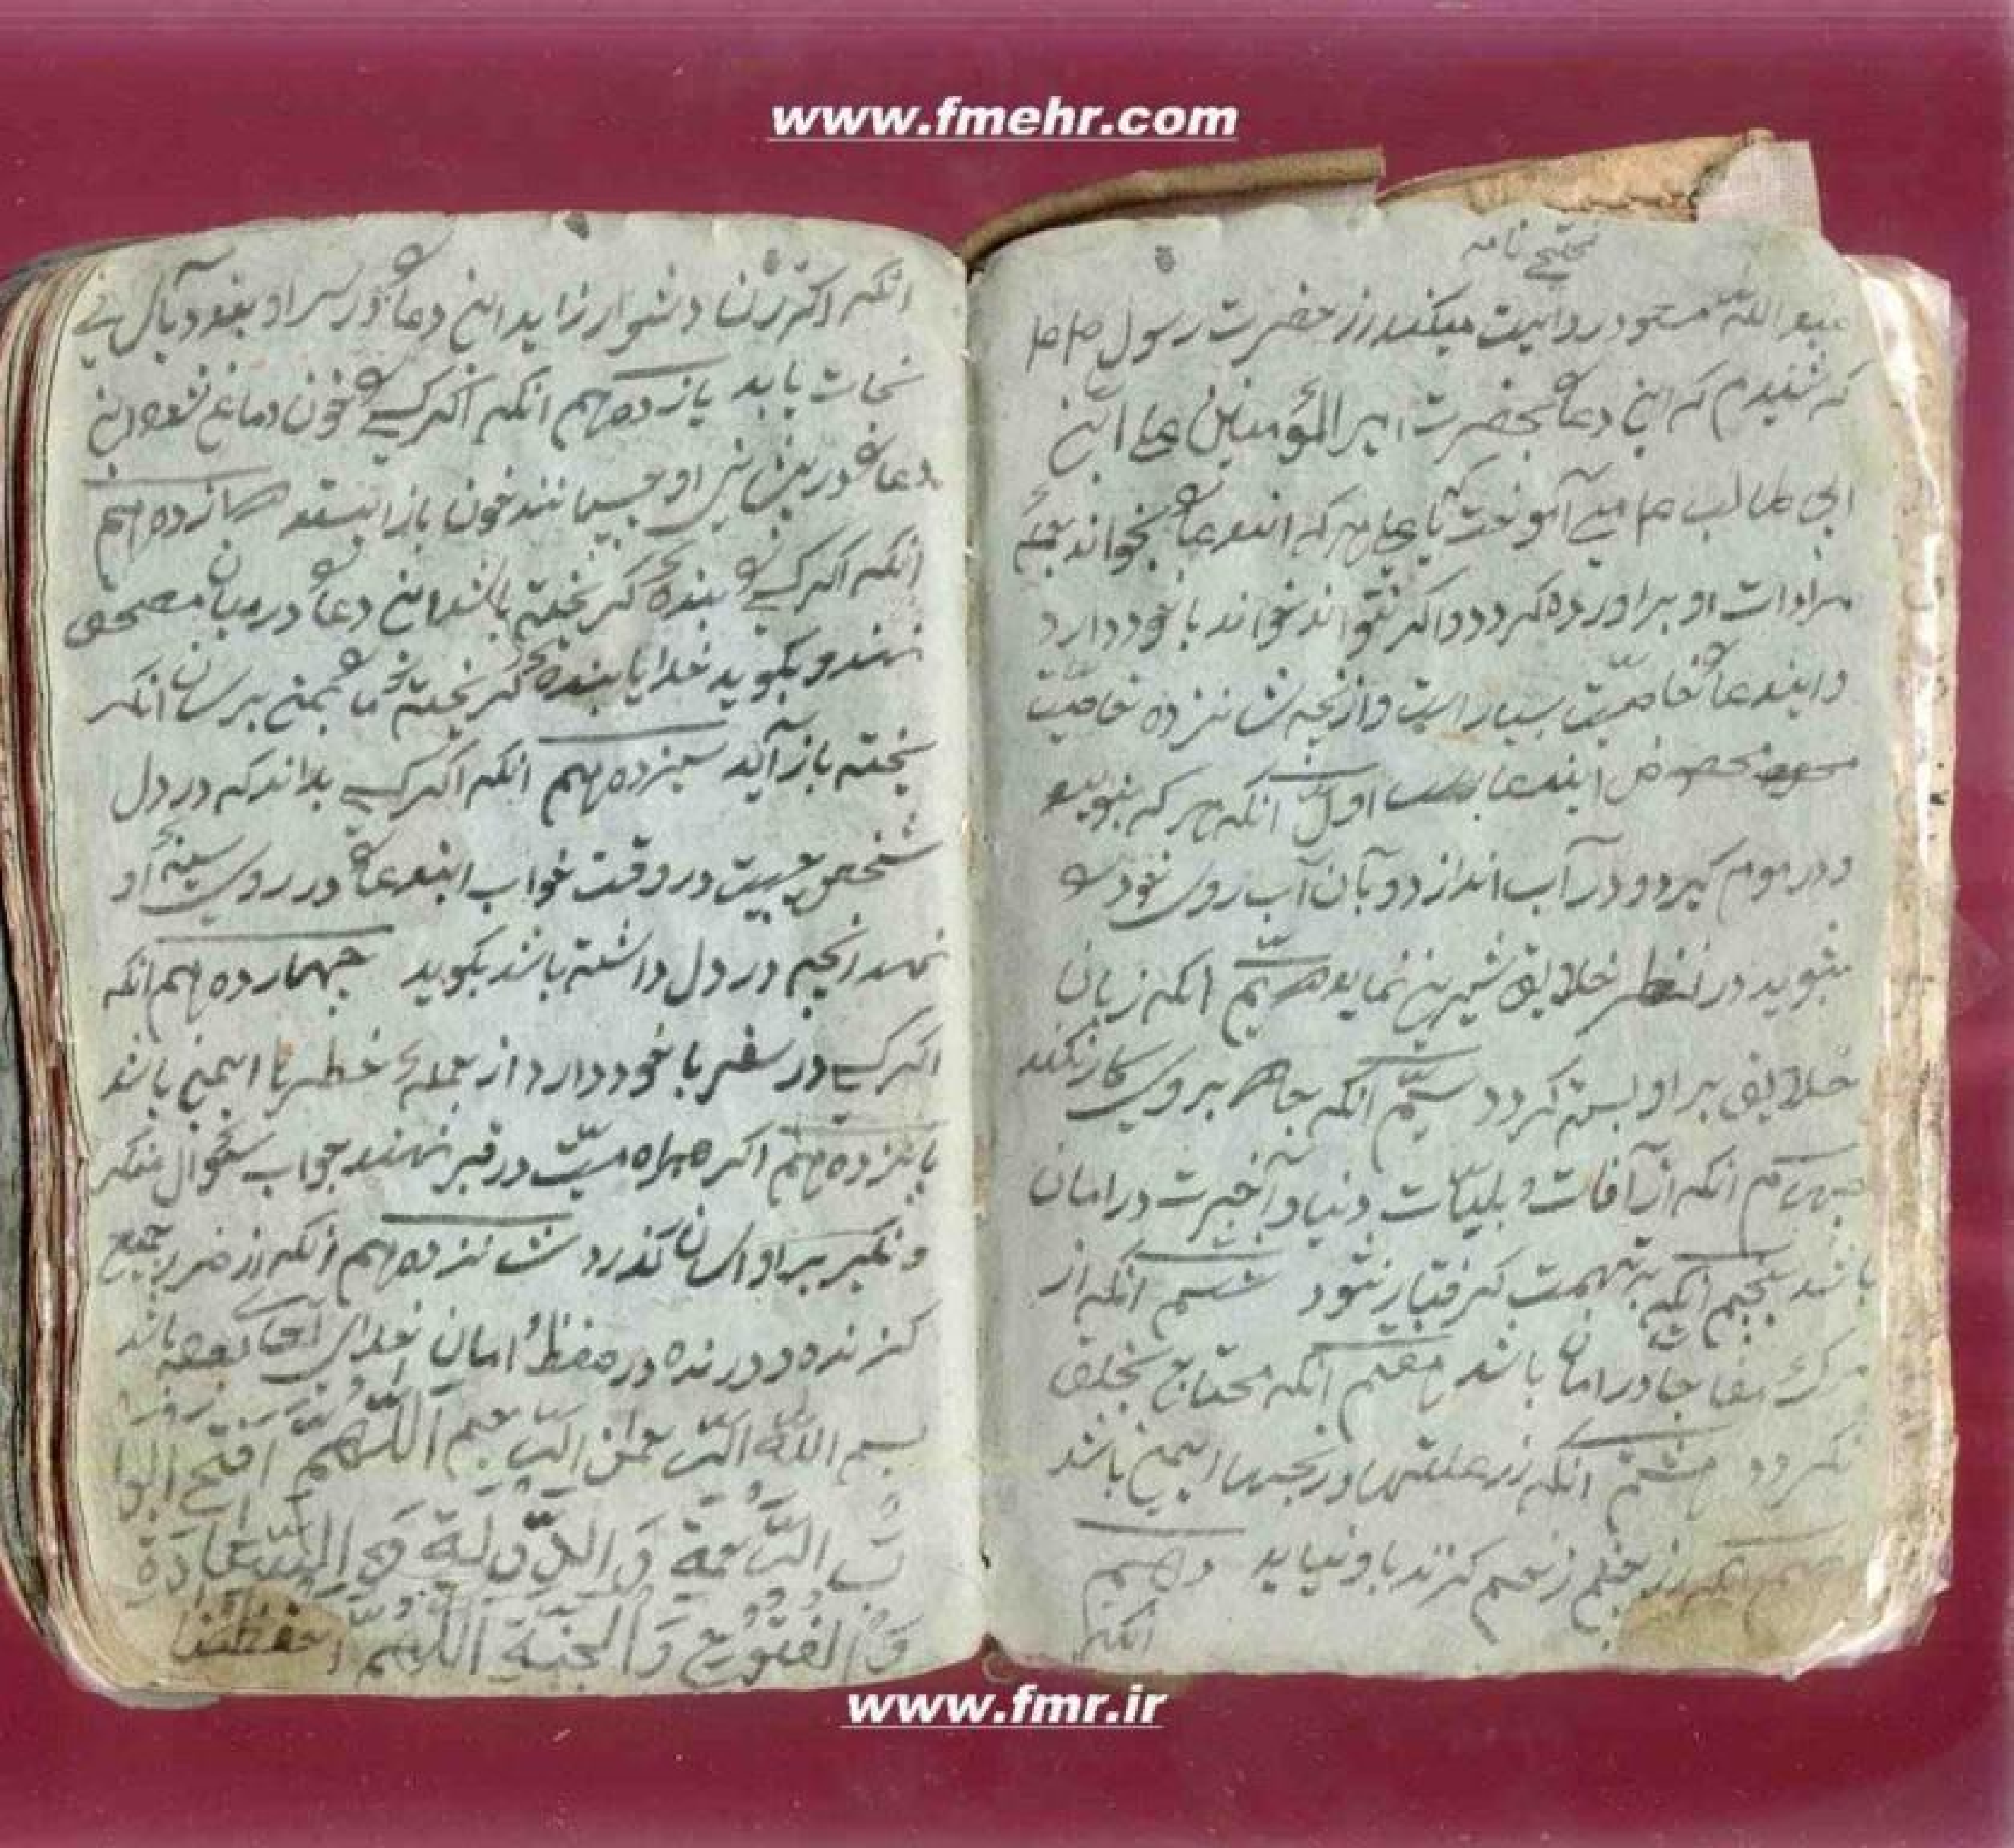 www.fmehr.com
نامه
عبد الله مسعود روایت میکند از حضرت رسول
که شنیدم که این دعا بحضرت امیر المؤمنین علی ابن
ابی طالب می آموخت یا علی هر که ایندعا بخواند جمله
مرادات او براورده گردد و اگر نتواند خواند با خود دارد
و ایندعا خاصیت بسیار است و از نجه شانزده خاصیت
مخصوص ایندعا اول انکه هر که بنویسد
و در موم گیرد و در آب اندازد و بآن آب روی خود
بشوید در نظر خلایق شیرین نماید انکه زبان
خلایق بر او بسته گردد سیّم انکه بروی کار نکند
چهارم انکه از آفات و بلیّات دنیا و آخرت در امان
باشد پنجم انکه به تهمت گرفتار نشود ششم انکه از
مرگ مفاجا در امان باشد هفتم انکه محتاج بخلق
نگردد هشتم انکه از علتها و رنجها ایمن باشد
انکه از زخم گزند باو نیاید دهم
انکه
انکه اگر زن دشوار زاید این دعا در سر او بندد
نجات یابد یازدهم انکه اگر کسی خون دماغ شود این
دعا در او چسپانند خون باز ایستد
انکه اگر کسی بنده گریخته باشد این دعا در میان مصحف
نهند و بگوید خدایا بنده گریخته بمن برسان انکه
باز آید سیزدهم انکه اگر کسی بداند که در دل
شخص چیست در وقت خواب ایندعا در روی سینه او
نهد انچه در دل داشته باشد بگوید چهاردهم انکه
اگر کسی در سفر با خود دارد از جمله خطرها ایمن باشد
پانزدهم اگر همراه میّت در قبر نهند جواب سئوال منکر
و نکیر بر او اسان گذرد شانزدهم انکه از ضرر جمیع
گزنده و درنده در حفظ امان خدای باشد
بسم الله الرّحمن الرّحیم اللّهمّ افتح ابوا
بَ النّعمة وَ الدّولة وَ السّعادة
وَ الفتوح وَ الجنّة اللّهمّ احفظنا
www.fmr.ir